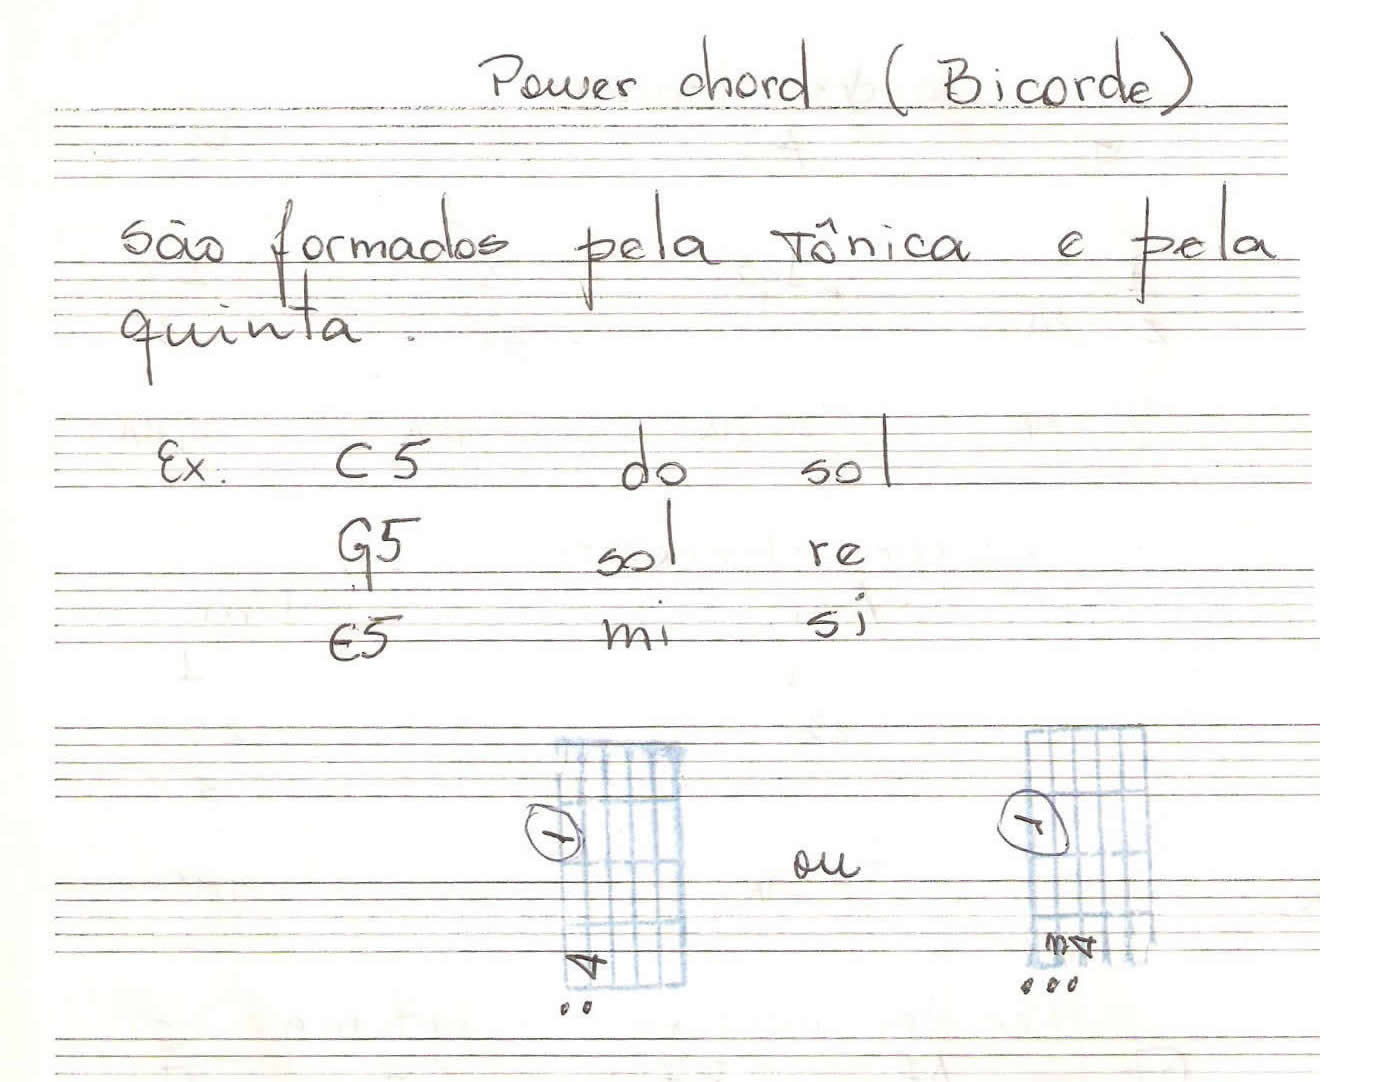 Power chord (Bicorde)
são formados pela Tônica e pela
quinta.
Ex: C5 do sol
G5 sol re
E5 mi si
1 ou 1
4 34